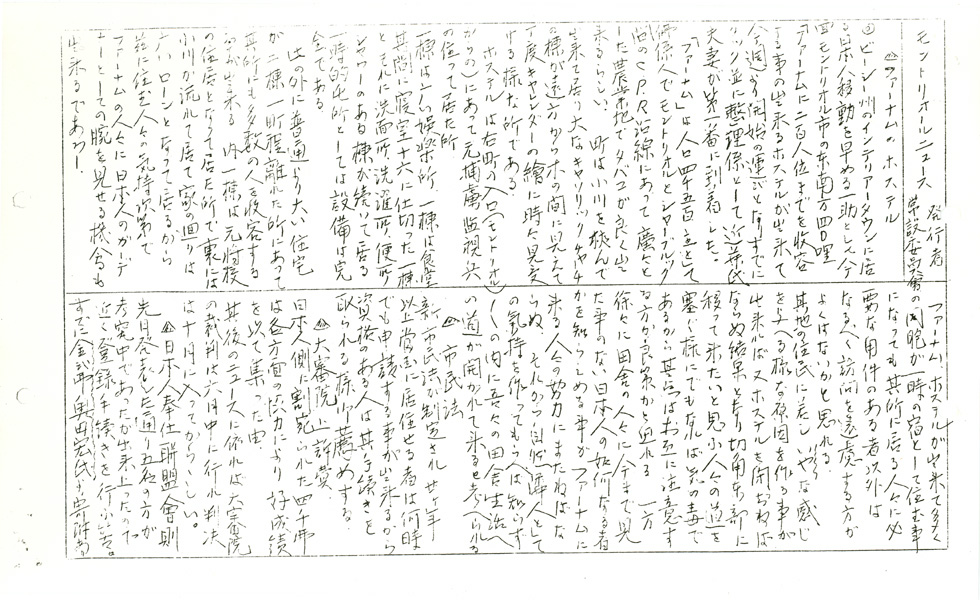 モントリオールニュース 発行者
常設委員会
ファーナムのホステル
ビーシー州のインテリアータウンに居
る日本人移動を早める助として今
回モントリオル市の東南方四〇哩
「ファーナムに二百人位までを收容
する事の出来るホステルが出来て
今週より開始の運びとなりすでに
夫妻が第一番に到着した。
「ファーナム」は人口四千五百主として
佛係人でモントリオルとシャーブルック
間のC.P.R沿線にあって廣々と
した農業地でタバコが良く出
来るらしい、町は小川を挟んで
出来て居り大なキャソリックチャチ
の棟が遠方から木の間に見えて
丁度キャレンダーの繪に時々見受
ける様な所である、
ホステルは右町の入口(モントリオル
より)にあって元捕虜監視兵
の使って居た所
一棟は 娯樂所、一棟は食堂
其間に寝室十六に仕切った一棟
とそれに洗面所、洗濯所、便所
シャワーのある棟が続いて居る
一時的宅所としては設備は完
全である
此の外に普通より大い住宅
が二棟一町程離れた所にあって
其所にも多数の人を收容する
事が出来る 内一棟は元將校
の住居となって居た所で裏には
小川が流れて居て家の回りは
大いローンとなって居るから
茲に住む人々の気持次第で
ファーナムの人々に日本人のガーデ
ナーとしての腕を見せる機會も
出来るであろー
ファーナムホステルが出来て多く
の同胞が一時の宿として住む事
になっても其所に居る人々に必
要な用件のある者以外は
なるべく訪問を遠慮する方が
よくはないかと思れる、
其地の住民にいやな感じ
を与へる様な原因を作る事が
出来れば又ホステルを閉おねば
ならぬ結果となり切角東部に
移って来たいと思ふ人々の道を
塞ぐ様にでもなれば気の毒で
あるから其点はお互に注意す
る方が良策かと思れる 一方
徐々に田舎の人々に今まで見
た事のない日本人の如何なる者
かを知らしめる事がファーナムに
来る人々の努力にまたねばな
らぬ、それかつ自然隣人として
の気持を作ってもらへば知らず
の内に吾々の田舎生活へ
の道が開かれて来ると考へられる
市民法
新市民法が制定され廿年
以上當國に居住せる者は何時
でも申請する事が出来るから
資格のある人は其手続きを
取られる様お薦めする、
大審院上訴費
日本人側に割宛られた四千弗
は各方面の尽力により好成績
を以て集った由、
其後のニュースに依れば大審院
の裁判は六月中に行れ判決
は十月に入ってかららしい。
日本人奉仕聯盟會則
先月発表した通り五名の方が
考究中であったが出来上ったので
近く登録手続きを行ふ筈。
すでに金貳弗奥田宏氏より寄附あり